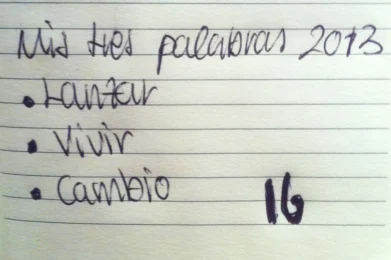 Mis tres palabras 2013
• Lanzar
• Vivir
• Cambio
16